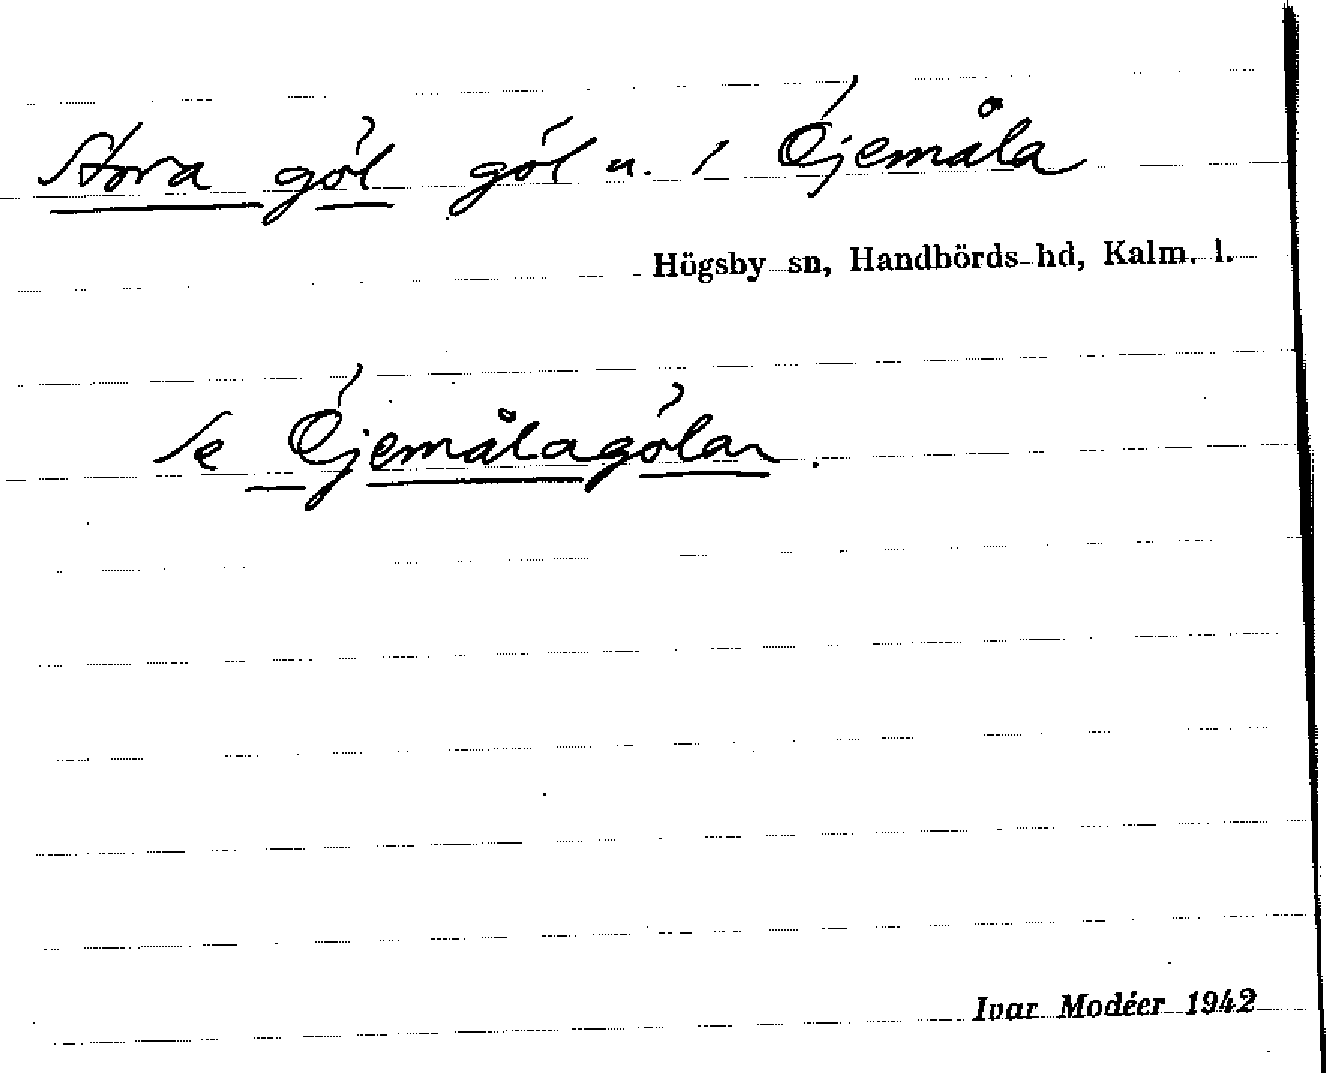 Stora göl göl u. 1 Öjemåla
Högsby sn, Handbörds hd, Kalm. l.
Se Öjemålagölar.
Ivar Modéer 1942